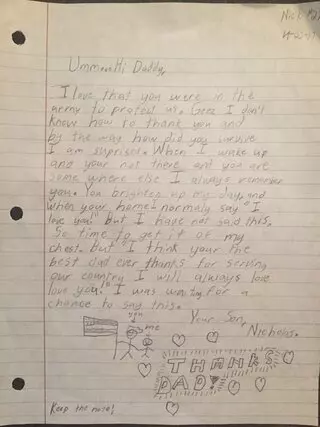 Nick
Ummm...Hi Daddy,
I love that you were in the
army to protect us. Geez I don't
know how to thank you and
by the way how did you survive
I am suprise. When I wake up
and your not there and you are
some where else I always remember
you. You brighten up my day, and
when your home I normaly say "I
love you" but I have not said this.
So time to get it of my
chest. but "I think your the
best dad ever thanks for serving
our country I will always love
love you!" I was waiting for a
chance to say this.
Your Son,
Nicholas.
you
me
THANKS
DAD!
Keep the note!